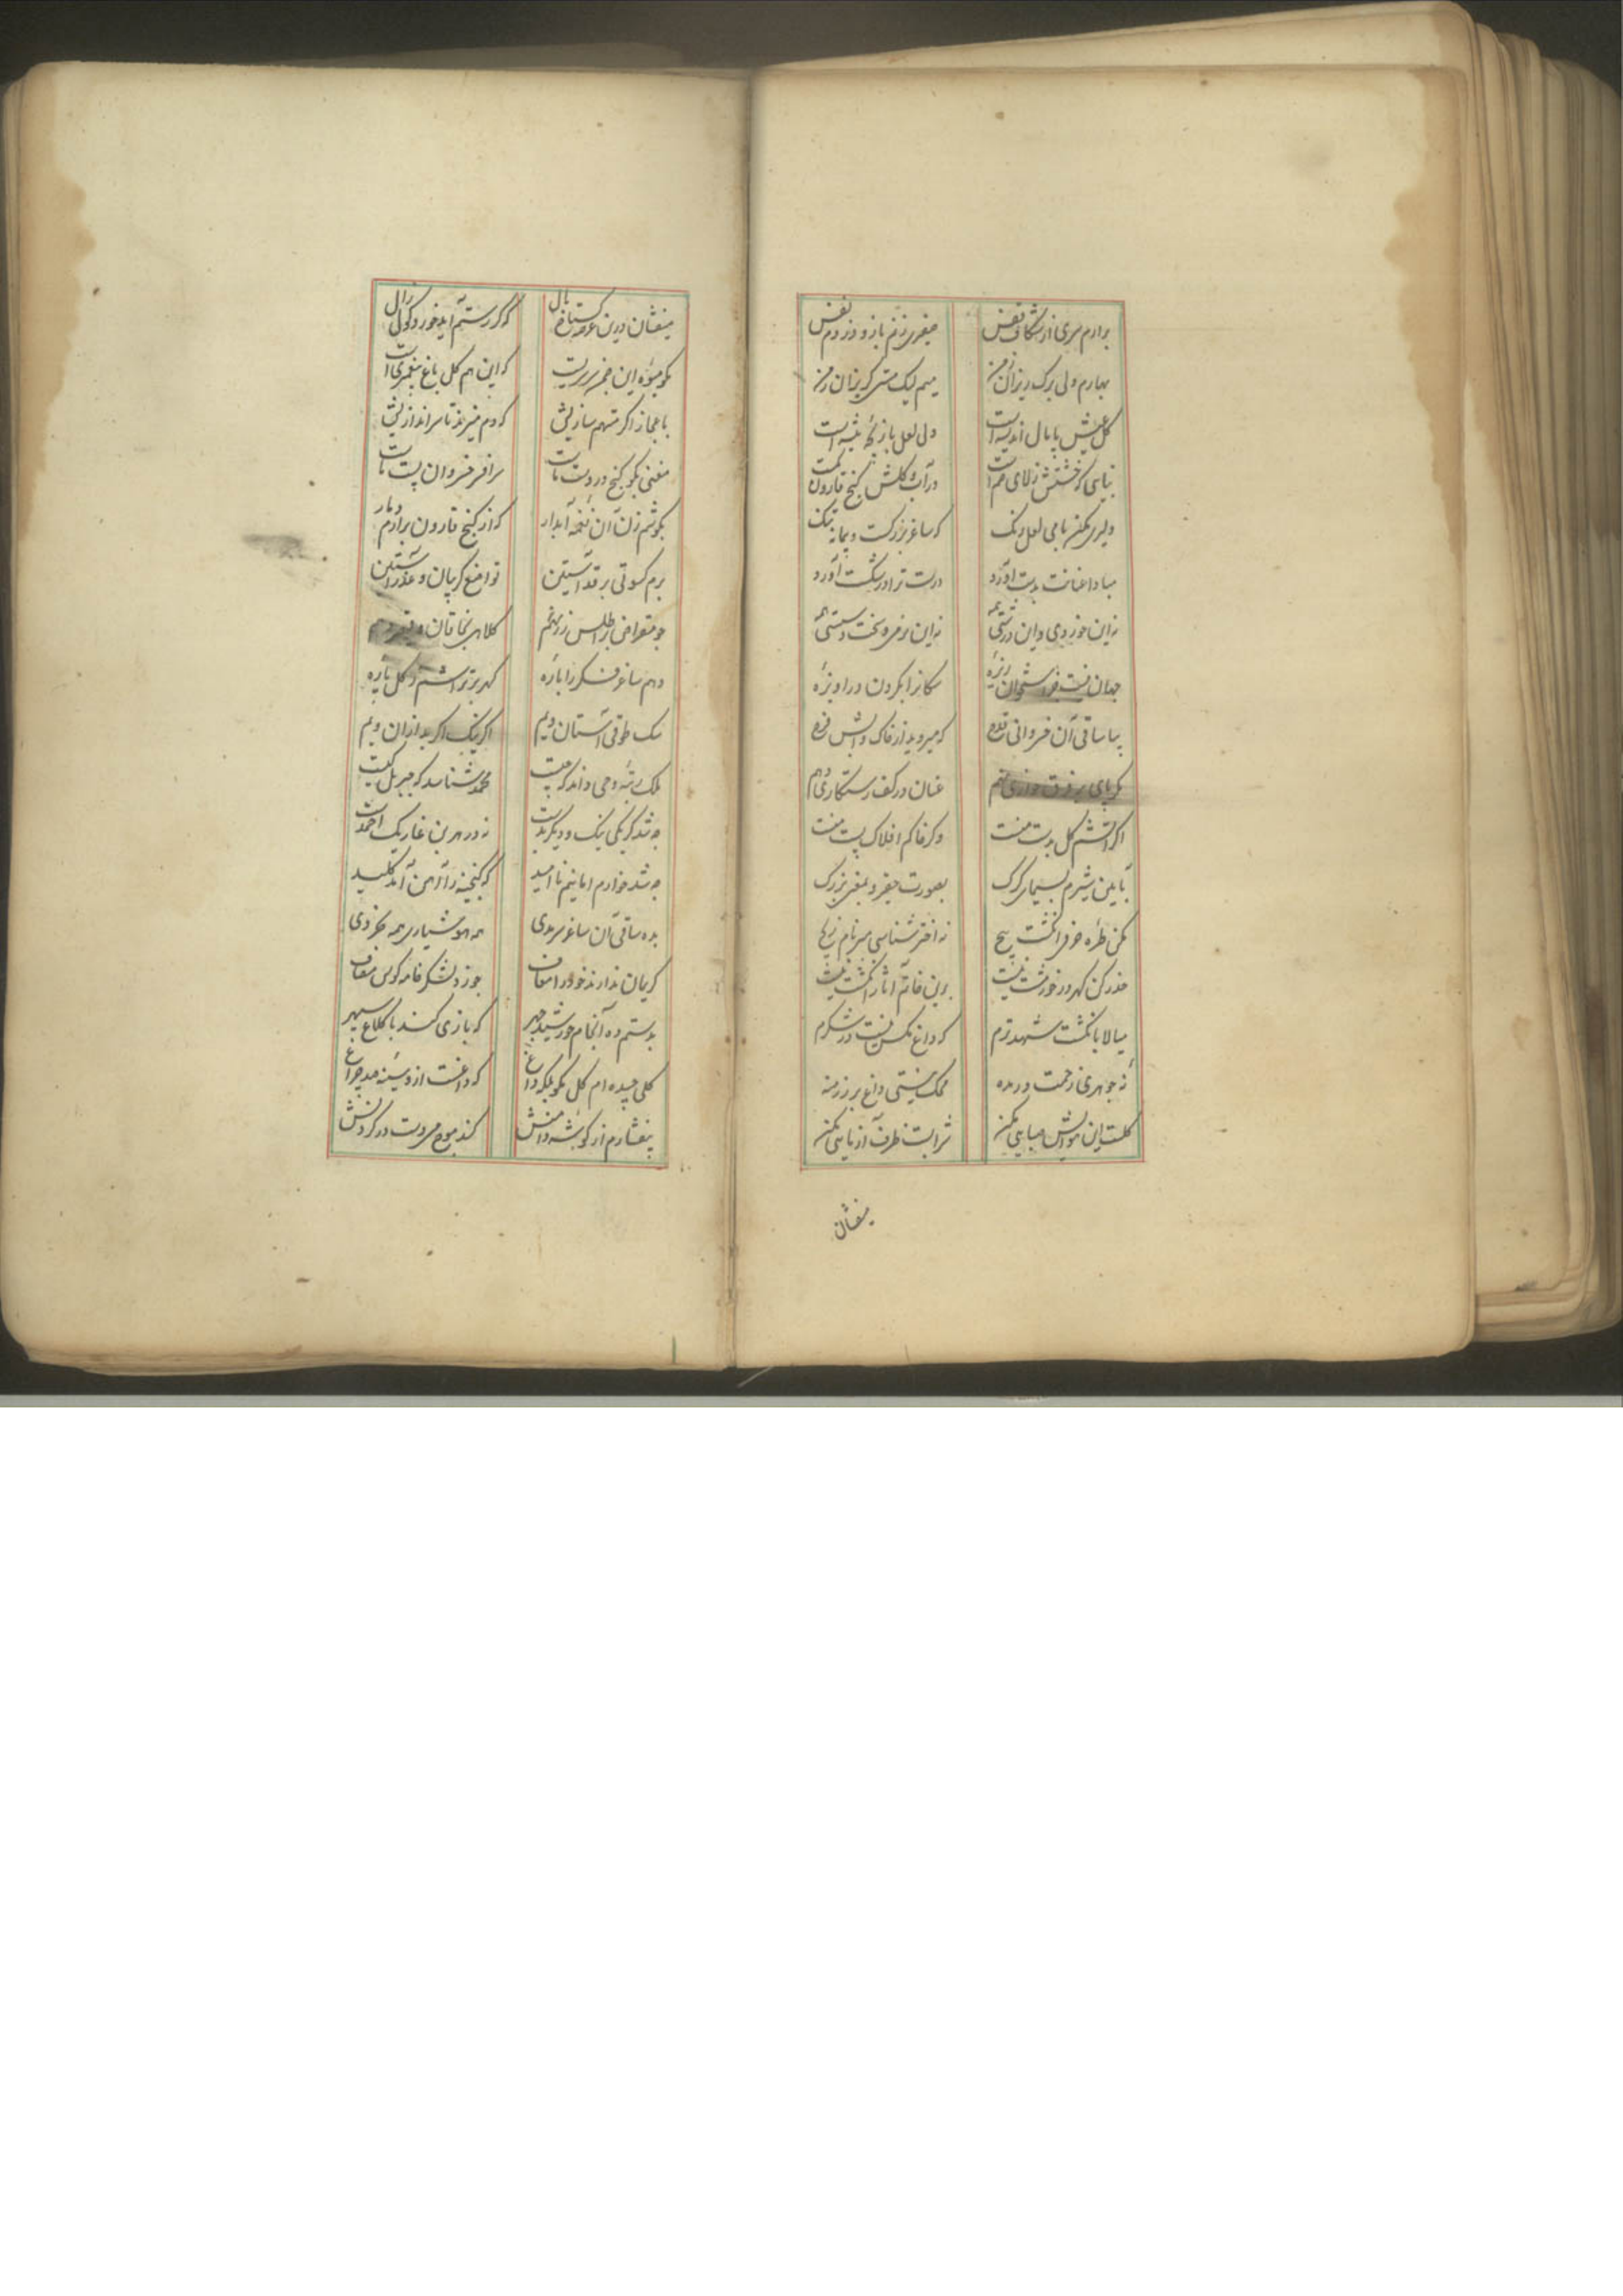 برارم سری از شکاف قفس صفیری زنم باز و دزدم نفس
بهارم ولی برک ریزان زمن میم لیک مستی کریزان زمن
کل عیش پامال اندیشه است ولی لعل بازیچه تیشه است
بنای که خشتش ز لای خم است در آب و کلش کنج قارون کمست
دلیری مکن با می لعل رنک که ساغر بزرکست و پیمانه تنک
مبادا عنانت بدست آورد درست ترا در شکست آورد
نه این خوردی و این درشتی همه نه این
جهان نیست
بیا ساقی آن خسروانی قدح که میروید از خاک
که پای بر فرق عنان در کف رستکاری دهم
اکر آتشم کل بدست منست وکر خاکم افلاک پست منست
بآیین شیرم بسیمای کرک بصورت حقیر و بمغز بزرک
مکن طره خوفرانکشت پیچ نه اختر شناسی مبر نام زیج
حذر کن کهر در خور مشت نیست برین خاتم آثار انکشت نیست
میالا بانکشت شهد ترم که داغ مکس نیست در شکرم
نه جوهری زحمت در مده محک نیستی داغ بر زر منه
کلست این مبایی مکن شرابست ظرف آزمایی مکن
میفشان
میفشان درین عرصه کستاخ بال که کر رستم آید خورد کوی زال
مکو میوه این شجر سرسریست که این هم کل باغ پیغمبریست
باعجاز اکر متهم سازیش که دم میزند تا سر اندازیش
مغنی مکو کنج در دست ماست سر افسر خسروان پست ماست
بکوشم زن آن نغمه آبدار که از کنج قارون برارم دمار
برم کسوتی بر قد آستین تواضع کریبان و عذر آستین
چو مقراض بر اطلس زر نهم کلاه بخاقان و قیصر دهم
دهم ساغر فکر را باره کهر بر تراشم ز کل پاره
سک طوقی آستان ویم اکر نیک اکر بد ازان ویم
ملک رتبه وحی داند که چیست محمد شناسد که جبریل کیست
چه شد کر یکی نیک و دیکر بدست نه در هر بن غار یک احمدست
چه شد خوارم اما نیم نا امید که کنجینه را آهن آمد کلید
بده ساقی آن ساغر سرمدی همه هوشیاری همه بخردی
کریمان ندارند خود را معاف چو زد لشکر فاقه کوس مصاف
بدستم ده آنجام خورشید چهر که بازی کند با کلاغ سپهر
کلی چیده ام کل مکو بلکه داغ که داغست ازو سینه صد چراغ
بفشارم از کوشه دامنش کند موج می دست در کردنش